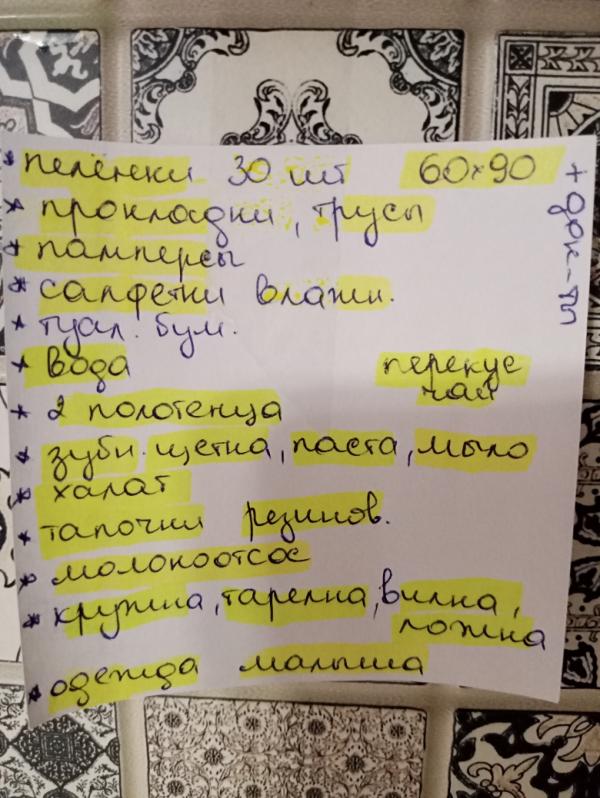 * пелёнки 30 шт 60×90
* прокладки, трусы
* памперсы
* салфетки влажн.
* туал. бум.
* вода перекус
чай
* 2 полотенца
* зубн. щетка, паста, мыло
* халат
* тапочки резинов.
* молокоотсос
* кружка, тарелка, вилка,
ложка
* одежда малыша
+ док-ты